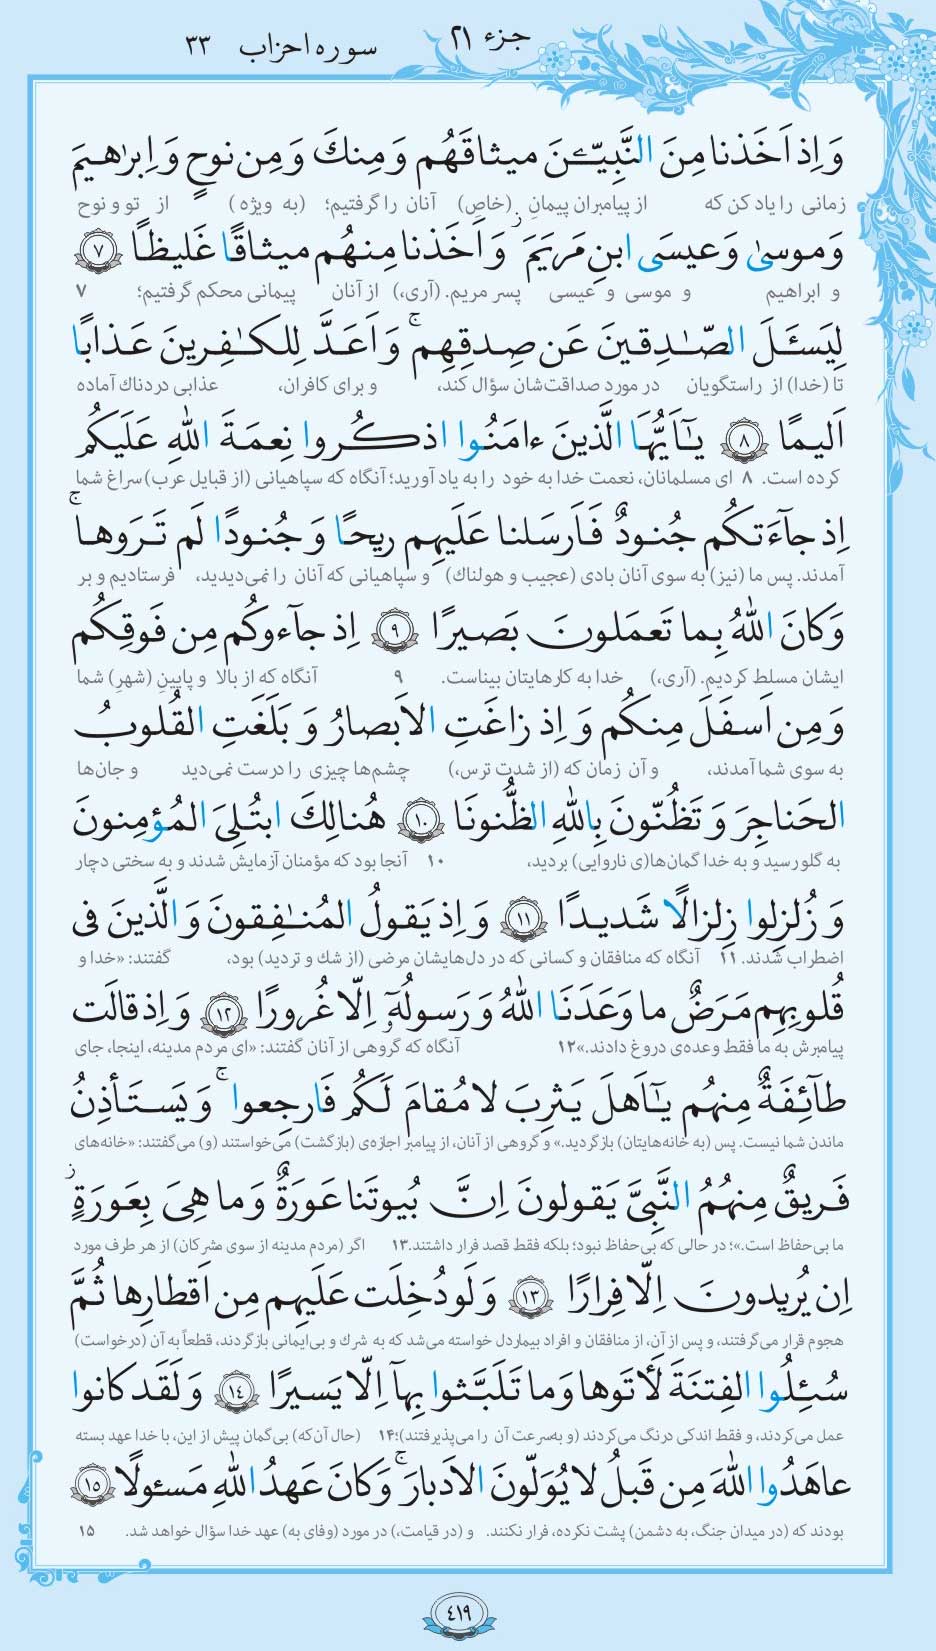 جزء ۲۱ سوره احزاب ۳۳
وَ اِذ اَخَذنا مِنَ النَّبِيّـٖنَ ميثاقَهُم وَ مِنكَ وَ مِن نوحٍ وَ اِبرٰهيمَ
زمانی را یاد کن که از پیامبران پیمانِ (خاصِ) آنان را گرفتیم؛ (به ویژه) از تو و نوح
وَ موسیٰ وَ عیسَی ابنِ مَریَمَ ۖ وَ اَخَذنا مِنهُم میثاقًا غَلیظًا ﴿۷﴾
و ابراهیم و موسی و عیسی پسر مریم. (آری،) از آنان پیمانی محکم گرفتیم؛ ۷
لِیَسـَٔلَ الصّـٰدِقینَ عَن صِدقِهِم ۚ وَ اَعَدَّ لِلکـٰفِرینَ عَذابًا
تا (خدا) از راستگویان در مورد صداقت‌شان سؤال کند، و برای کافران، عذابی دردناک آماده
اَلیمًا ﴿۸﴾ یـٰٓاَیُّهَا الَّذینَ ءامَنُوا اذکُروا نِعمَةَ اللّٰهِ عَلَیکُم
کرده است. ۸ ای مسلمانان، نعمت خدا به خود را به یاد آورید؛ آنگاه که سپاهیانی (از قبایل عرب) سراغ شما
اِذ جآءَتکُم جُنودٌ فَاَرسَلنا عَلَیهِم ریحًا وَ جُنودًا لَم تَرَوها ۚ
آمدند. پس ما (نیز) به سوی آنان بادی (عجیب و هولناک) و سپاهیانی که آنان را نمی‌دیدید، فرستادیم و بر
وَ کانَ اللّٰهُ بِما تَعمَلونَ بَصیرًا ﴿۹﴾ اِذ جآءوکُم مِن فَوقِکُم
ایشان مسلط کردیم. (آری،) خدا به کارهایتان بیناست. ۹ آنگاه که از بالا و پایینِ (شهرِ) شما
وَ مِن اَسفَلَ مِنکُم وَ اِذ زاغَتِ الاَبصارُ وَ بَلَغَتِ القُلوبُ
به سوی شما آمدند، و آن زمان که (از شدت ترس،) چشم‌ها چیزی را درست نمی‌دید و جان‌ها
الحَناجِرَ وَ تَظُنّونَ بِاللّٰهِ الظُّنونَا ﴿۱۰﴾ هُنالِکَ ابتُلِیَ المُؤمِنونَ
به گلو رسید و به خدا گمان‌ها(ی ناروایی) بردید، ۱۰ آنجا بود که مؤمنان آزمایش شدند و به سختی دچار
وَ زُلزِلوا زِلزالًا شَدیدًا ﴿۱۱﴾ وَ اِذ یَقولُ المُنـٰفِقونَ وَ الَّذینَ فی
اضطراب شدند. ۱۱ آنگاه که منافقان و کسانی که در دل‌هایشان مرضی (از شک و تردید) بود، گفتند: «خدا و
قُلوبِهِم مَرَضٌ ما وَعَدَنَا اللّٰهُ وَ رَسولُهۥٓ اِلّا غُرورًا ﴿۱۲﴾ وَ اِذ قالَت
پیامبرش به ما فقط وعده‌ی دروغ دادند.» ۱۲ آنگاه که گروهی از آنان گفتند: «ای مردم مدینه، اینجا، جای
طآئِفَةٌ مِنهُم یـٰٓاَهلَ یَثرِبَ لا مُقامَ لَکُم فَارجِعوا ۚ وَ یَستَأذِنُ
ماندن شما نیست. پس (به خانه‌هایتان) بازگردید.» و گروهی از آنان، از پیامبر اجازه‌ی (بازگشت) می‌خواستند (و) می‌گفتند: «خانه‌های
فَریقٌ مِنهُمُ النَّبِیَّ یَقولونَ اِنَّ بُیوتَنا عَورَةٌ وَ ما هِیَ بِعَورَةٍ ۖ
ما بی‌حفاظ است.»؛ در حالی که بی‌حفاظ نبود؛ بلکه فقط قصد فرار داشتند. ۱۳ اگر (مردم مدینه از سوی مشرکان) از هر طرف مورد
اِن یُریدونَ اِلّا فِرارًا ﴿۱۳﴾ وَ لَو دُخِلَت عَلَیهِم مِن اَقطارِها ثُمَّ
هجوم قرار می‌گرفتند، و پس از آن، از منافقان و افراد بیماردل خواسته می‌شد که به شرک و بی‌ایمانی بازگردند، قطعاً به آن (درخواست)
سُئِلُوا الفِتنَةَ لَـٔاتَوها وَ ما تَلَبَّثوا بِهآ اِلّا یَسیرًا ﴿۱۴﴾ وَ لَقَد کانوا
عمل می‌کردند، و فقط اندکی درنگ می‌کردند (و به‌سرعت آن را می‌پذیرفتند)؛ ۱۴ (حال آن‌که) بی‌گمان پیش از این، با خدا عهد بسته
عاهَدُوا اللّٰهَ مِن قَبلُ لا یُوَلّونَ الاَدبارَ ۚ وَ کانَ عَهدُ اللّٰهِ مَسئولًا ﴿۱۵﴾
بودند که (در میدان جنگ، به دشمن) پشت نکرده، فرار نکنند. و (در قیامت،) در مورد (وفای به) عهد خدا سؤال خواهد شد. ۱۵
۴۱۹